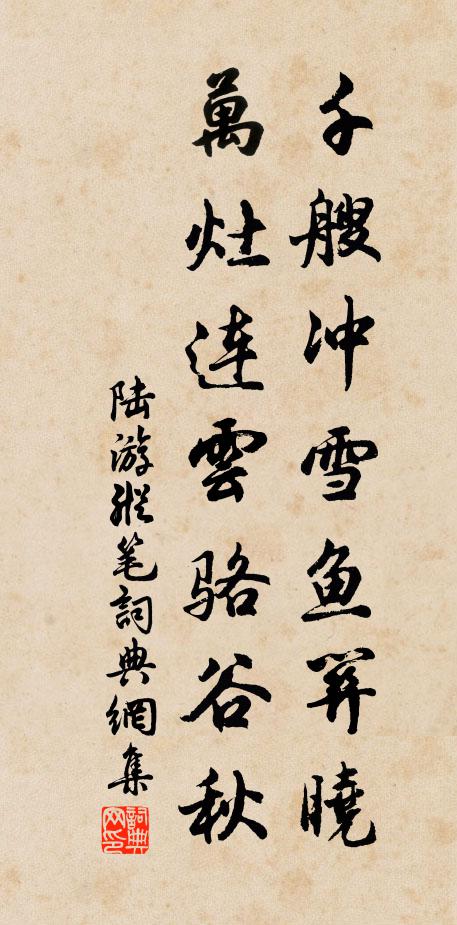 千艘冲雪鱼关晓
萬灶連雲骆谷秋
陆游縱笔詞典網集
詞典网印